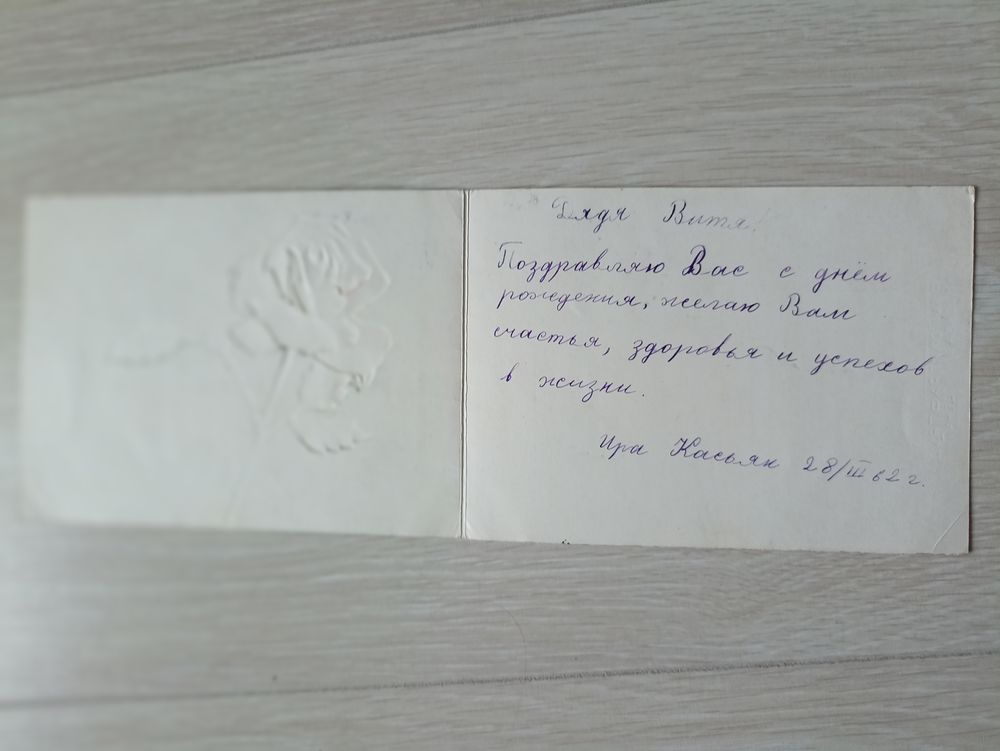 Дядя Витя!
Поздравляю Вас с днём
рождения, желаю Вам
счастья, здоровья и успехов
в жизни.
Ира Касьян 28/III 62 г.